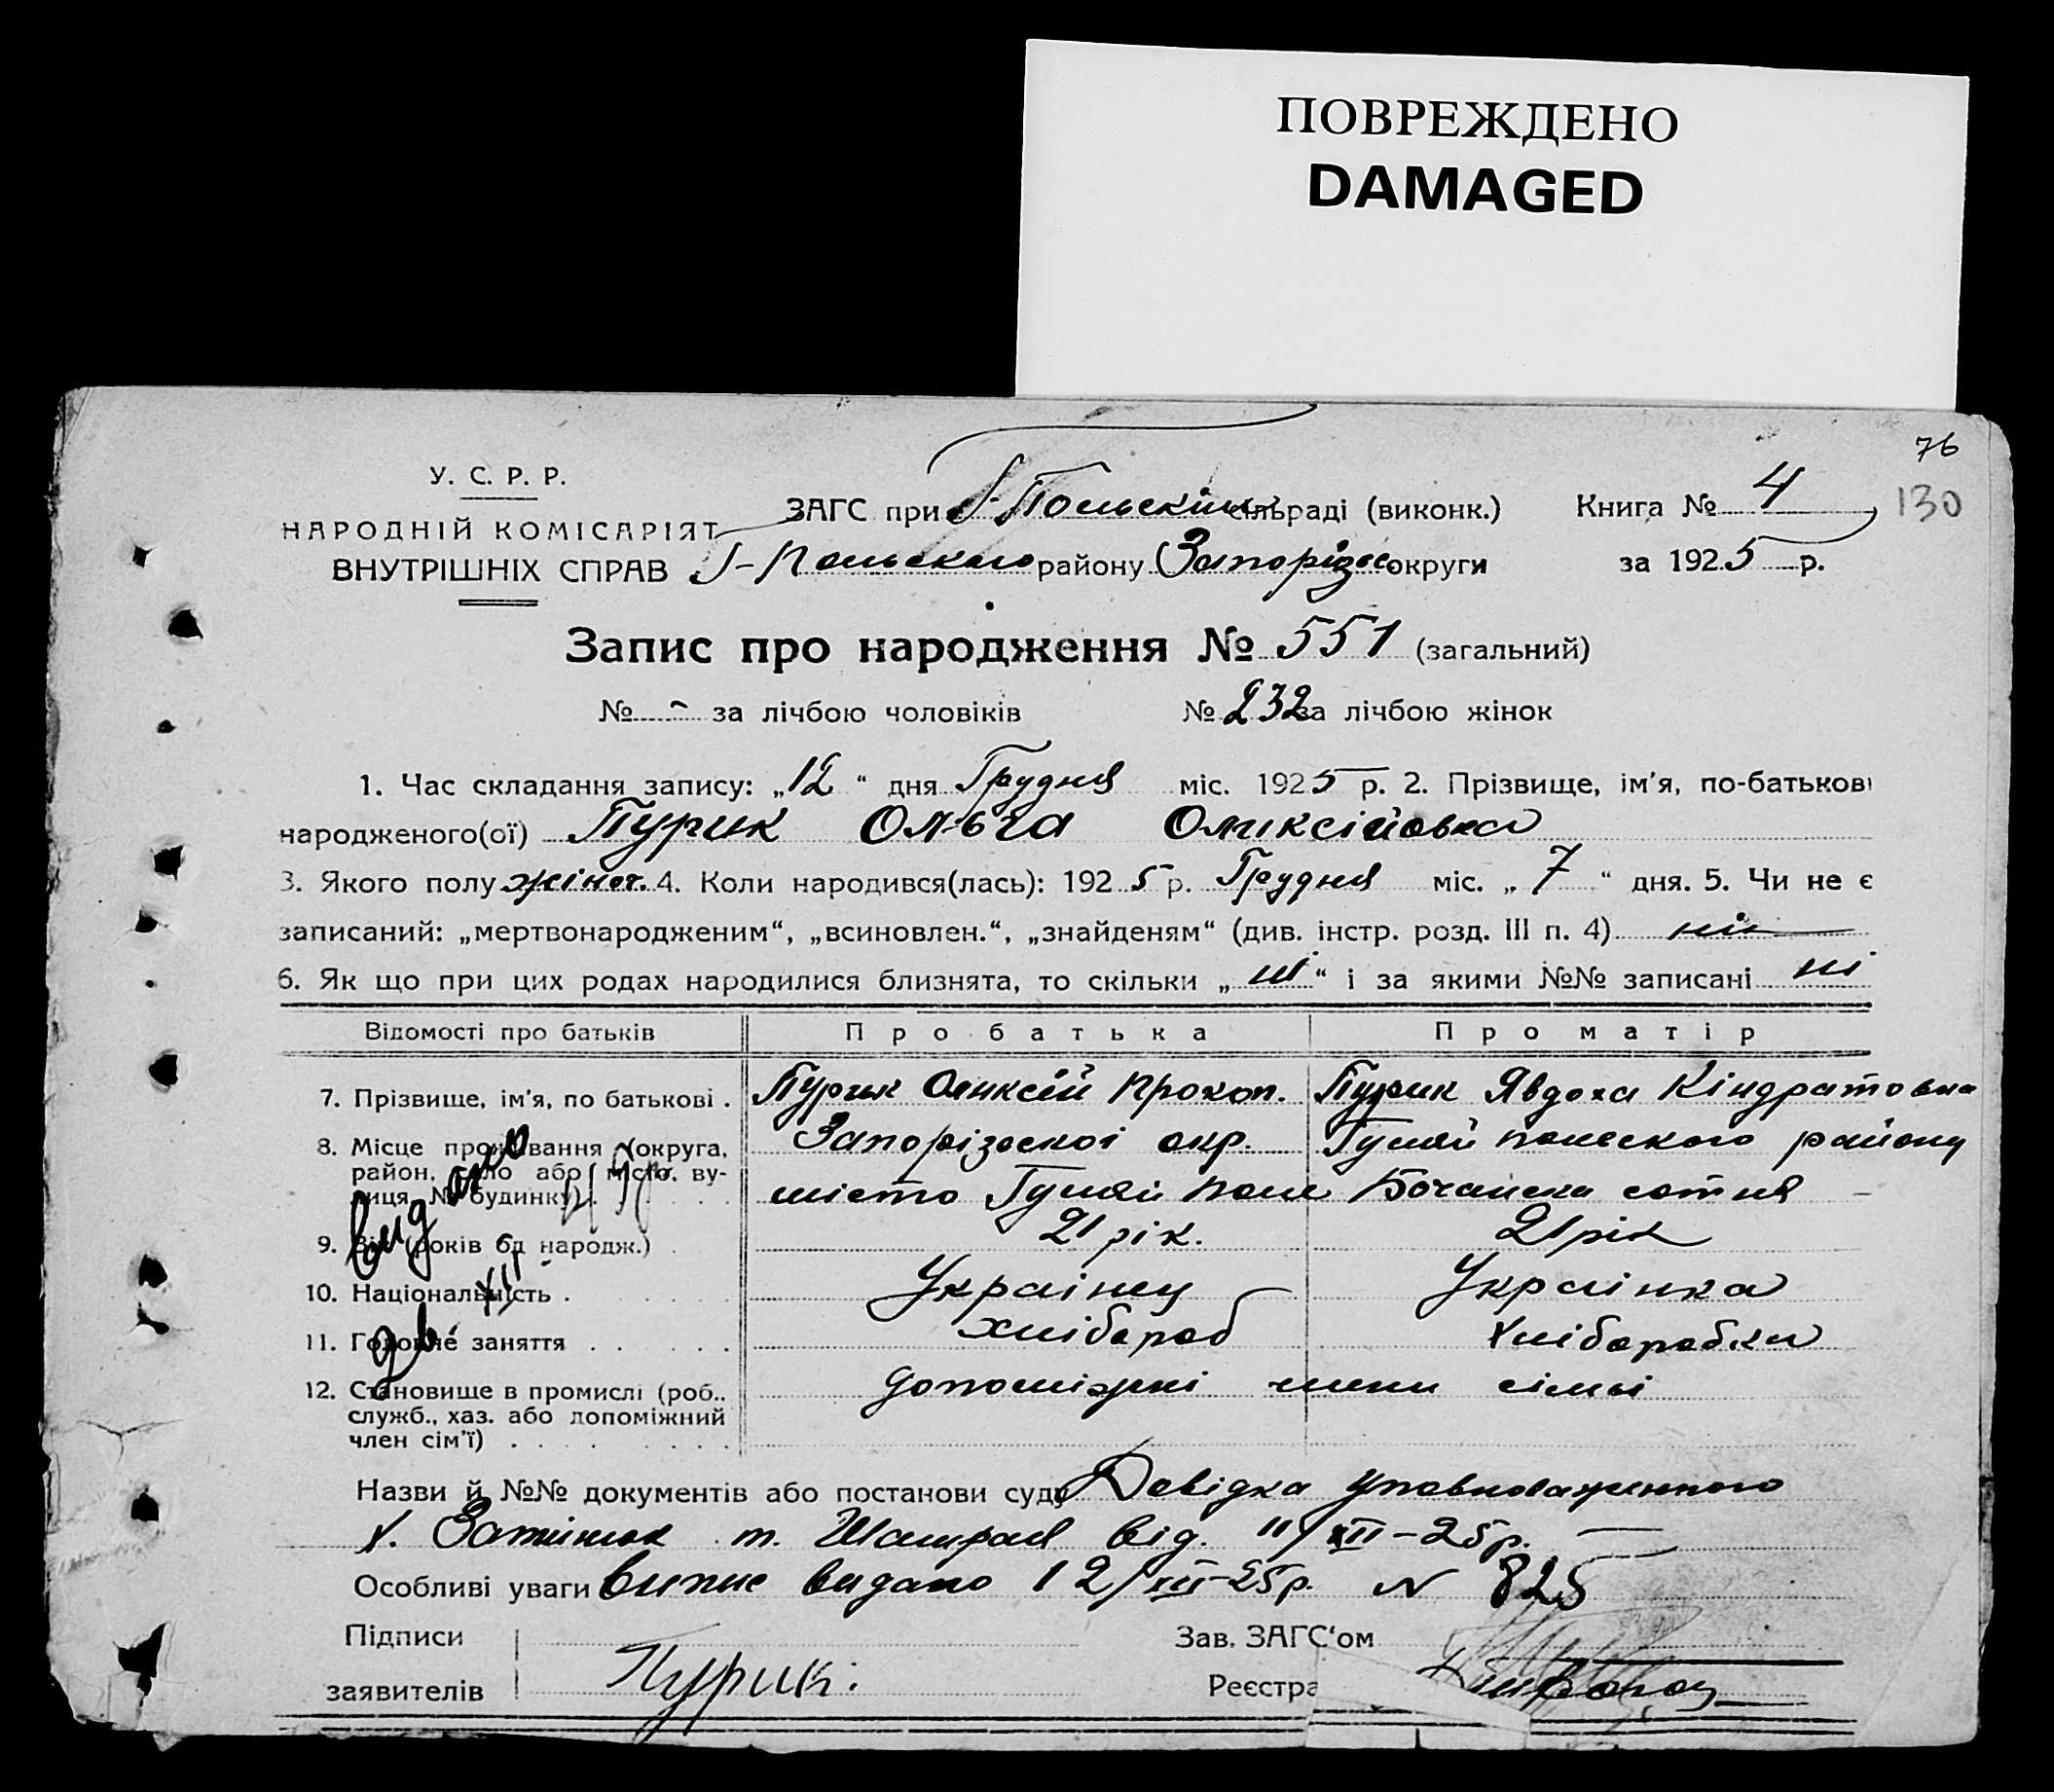 ПОВРЕЖДЕНО
DAMAGED
76
130
У. С. Р. Р.
НАРОДНІЙ КОМІСАРІЯТ
ВНУТРІШНІХ СПРАВ
ЗАГС при Г-Польскім сільраді (виконк.)
Книга № 4
Г-Польского району Запорізськ округи
за 1925 р.
Запис про народження № 551 (загальний)
№ - за лічбою чоловіків № 232 за лічбою жінок
1. Час складання запису: „12“ дня Грудня міс. 1925 р. 2. Прізвище, ім'я, по-батькові
народженого(ої) Пурик Ольга Оликсійовна
3. Якого полу жіноч. 4. Коли народився(лась): 1925 р. Грудня міс. „7“ дня. 5. Чи не є
записаний: „мертвонародженим“, „всиновлен.“, „знайденям“ (див. інстр. розд. III п. 4) ні
6. Як що при цих родах народилися близнята, то скільки „ні“ і за якими №№ записані ні
Відомості про батьків Про батька Про матір
7. Прізвище, ім'я, по батькові . Пурик Оликсій Прокоп. Пурик Явдоха Кіндратовна
8. Місце проживання (округа, Запорізської окр. Гуляй польского району
район, село або місто, ву-
лиця, № будинку) місто Гуляй Поле Бочанска сотня
9. Вік (років од народж.) 21 рік. 21 рік
10. Національність . Украінец Украінка
11. Головне заняття . . хлібороб хліборобка
12. Становище в промислі (роб., допоміжні члени сімьі
служб., хаз. або допоміжний
член сім'ї) . . . .
видано
Назви й №№ документів або постанови суду Довідка уповноваженного
т. від. 11/XII-25р.
Особливі уваги випис видано 12/XII-25р. N 825
Підписи
заявителів
Пурик.
Зав. ЗАГС'ом
Реєстра